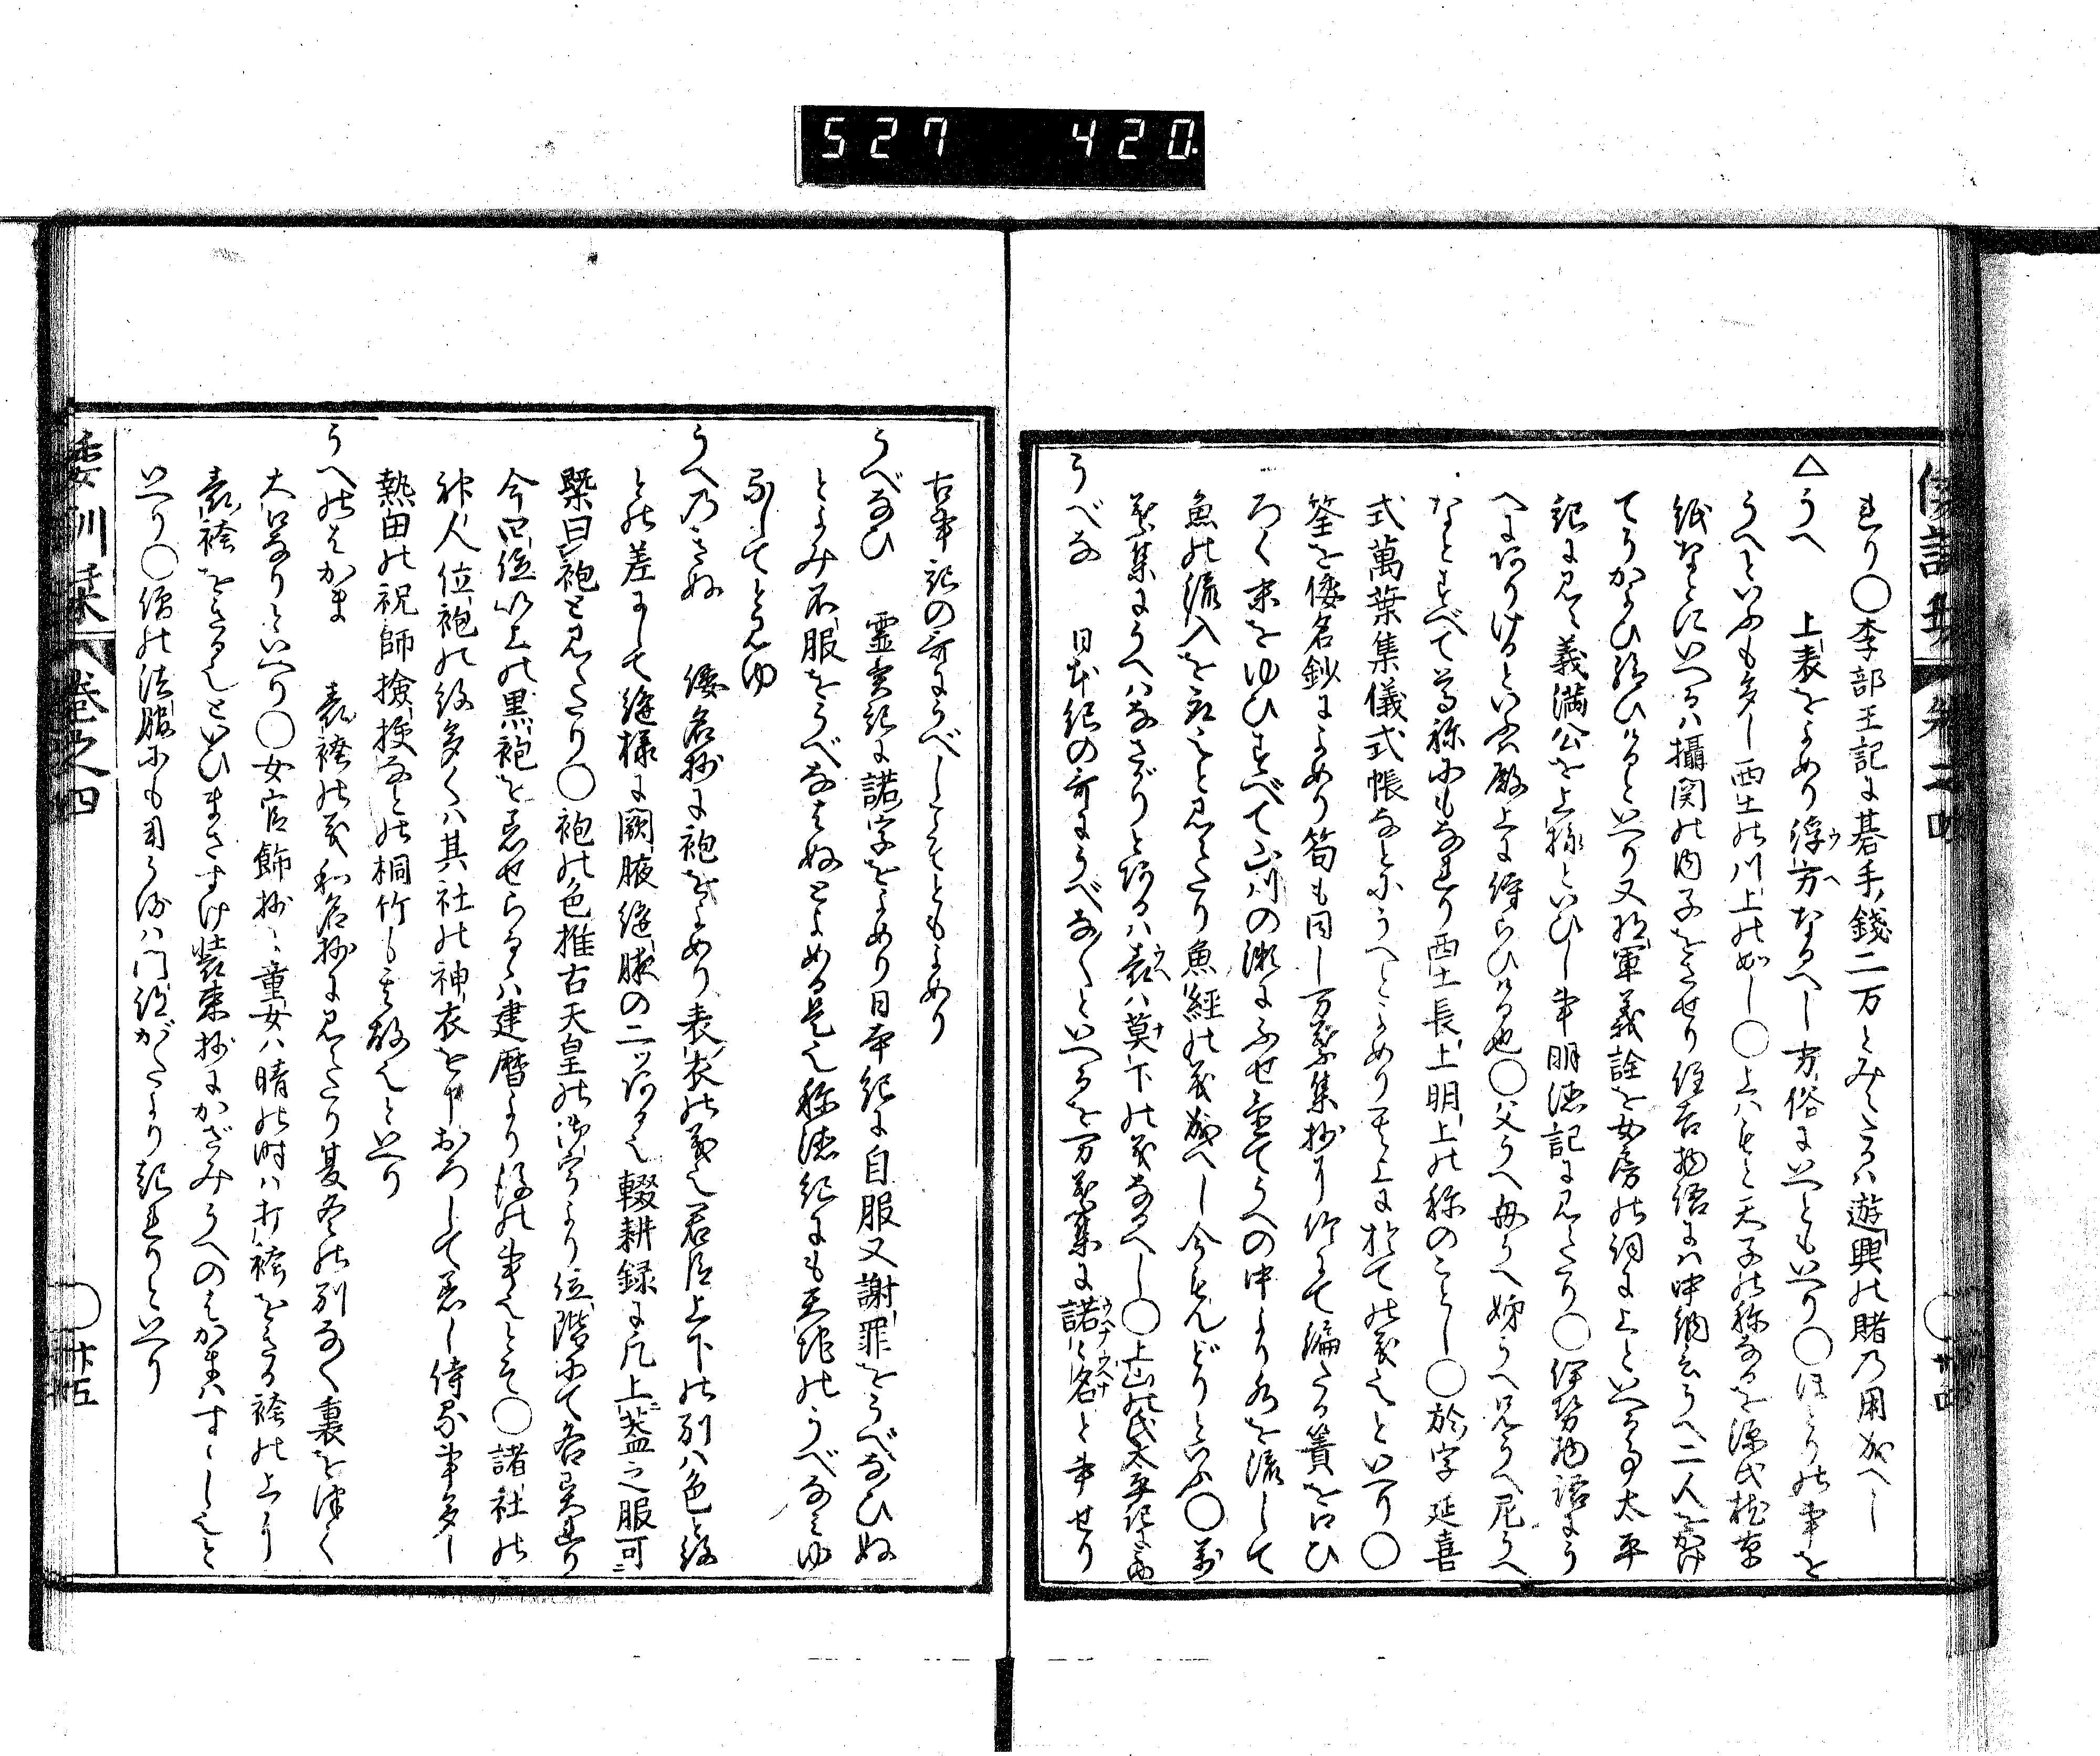 527 420
れり○李部王記に碁手錢二万とみえたるハ遊興の賭の用成へし
△うへ 上表をよめり浮方なるへし方俗にいへともいへり○ほとりの事を
うへといふも多し西土の川上の如し○上ハもと天子の称なるを源氏枕草
紙なとにいへるハ攝関の内子をさせり住吉物語にハ中納言うへ二人をかけ
てうかよひ給ひけるといへり又将軍義詮を女房の詞に上といへる事太平
記に見え義満公を上様といひし事明徳記に見えたり○伊勢物語にう
へにありけるといふハ殿上に侍らひける也○父うへ母うへ姉うへ兄うへ尼うへ
なとすへて尊称にもなれり西土長上明上の称のことし○於字延喜
式萬葉集儀式帳なとにうへとよめり其上に於ての義也といへり○
筌を倭名鈔によめり笱も同し万葉集抄に竹にて編たる簀を口ひ
ろく末をゆひすへて山川の瀬にふせ置てうへの中より水を流して
魚の流入を取也と見えたり魚經の義成へし今もんどりといふ○万
葉集にうへハなさがりとあるハ表ハ莫下の義なるへし○上山の氏太平記に
うべな 日本紀の哥にうべな〳〵といへるを万葉集に諾々名と書せり
倭訓栞 巻之四 ○廿四
古事記の哥にうべしこそともよめり
うべなひ 霊異記に諾字をよめり日本紀に自服又謝罪をうべなひぬ
とよみ不服をうべなはぬとよめる是也称徳紀にも
なしてと見ゆ
うへのきぬ 倭名抄に袍をよめり表衣の義也君臣上下の別ハ色と紋
との差にして縫様に闕腋縫腋の二ツあり也輟耕録に凡上蓋之服可ニ
槩曰袍と見えたり○袍の色推古天皇の御宇より位階にて各異れり
今四位以上の黒袍を着せらるゝハ建暦より後の事也とそ○諸社の
神人位袍の紋多くハ其社の神衣を申おろして着し侍る事多し
熱田の祝師撿挍なとの桐竹も其故也といへり
うへのはかま 表袴の義和名抄に見えたり夏冬の別なく裏を津く
大口なりといへり○女官飾抄ニ童女ハ晴の時ハ打袴をきる袴の上に
表袴をきる也といひまさすけ装束抄にかざみうへのはかまハすゝし也と
いへり○僧の法服にも用る海ハ門跡がたより起れりといへり
倭訓栞 巻之四 ○廿五